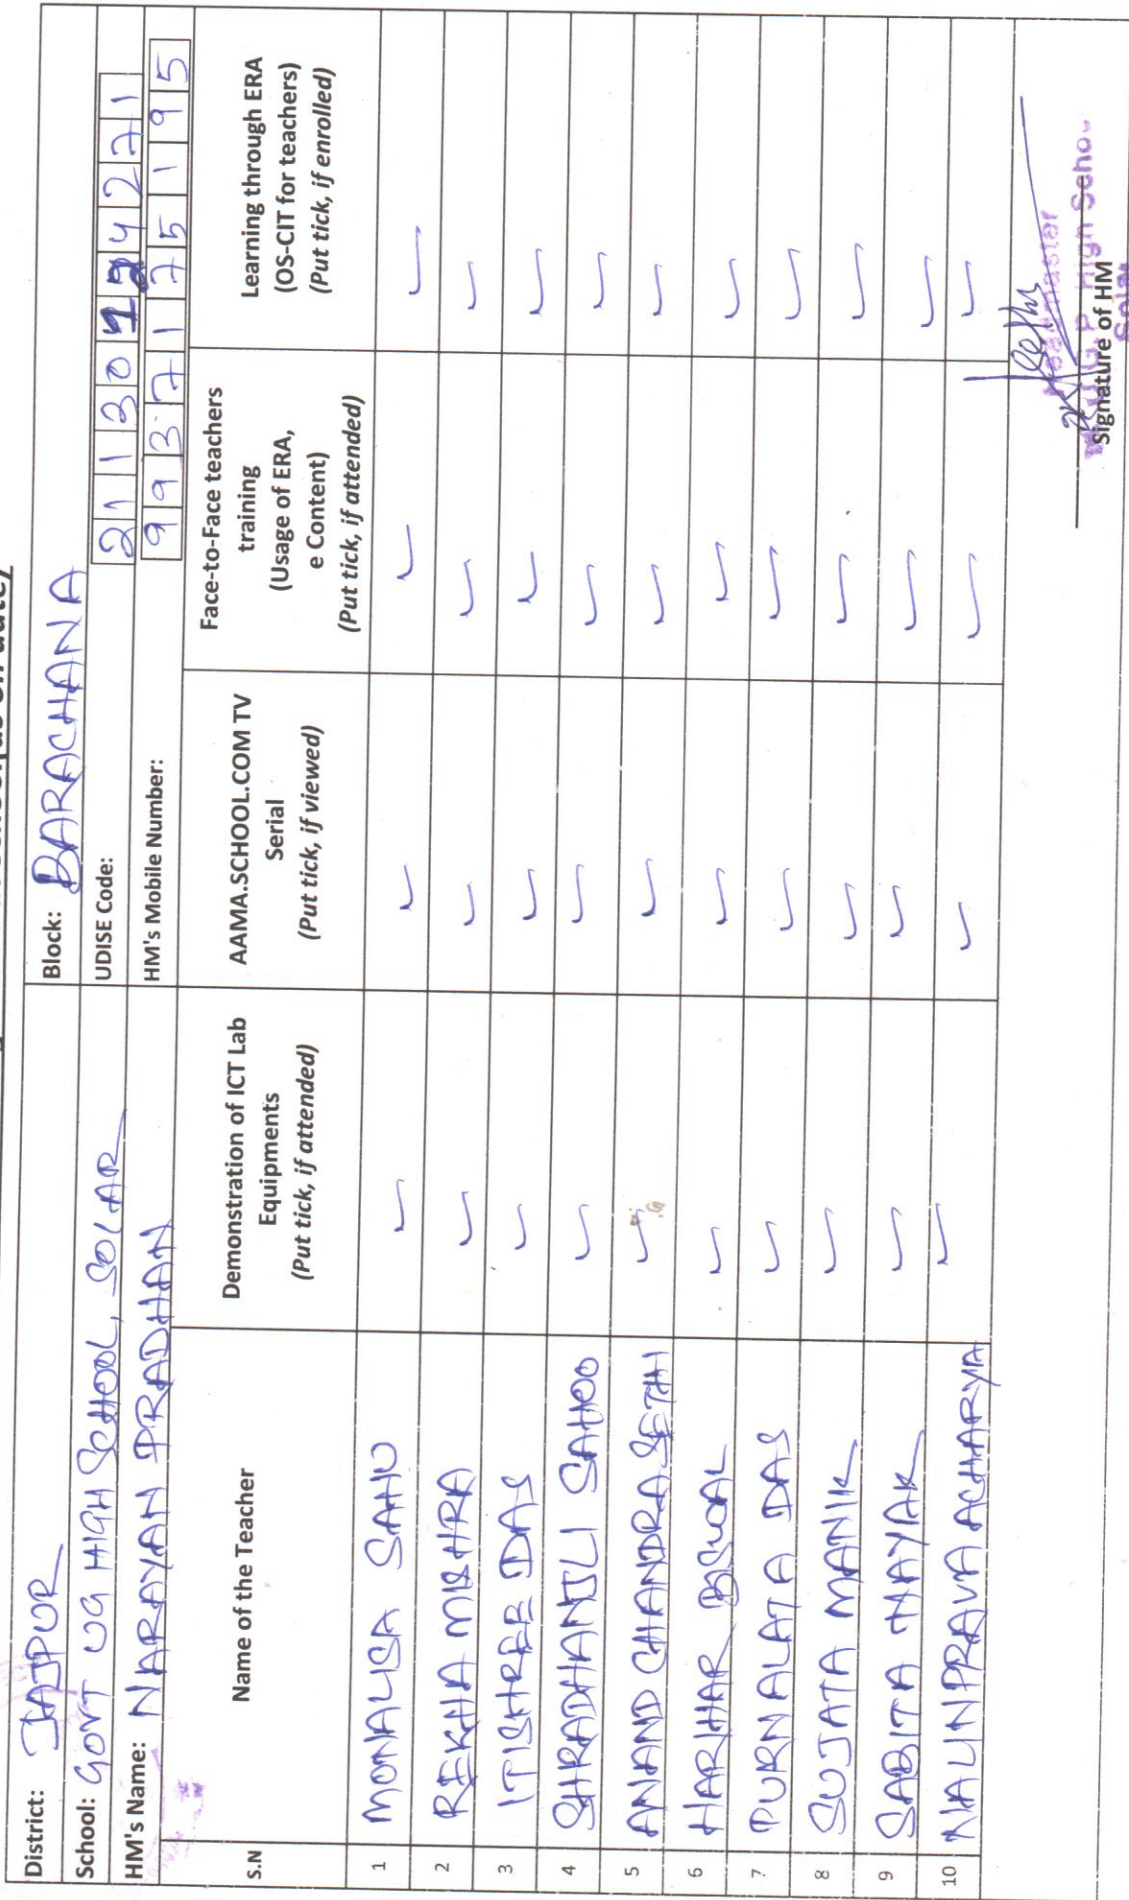 District: JAJPUR Block: BARACHANA
School: GOVT UG HIGH SCHOOL, SOLAR UDISE Code: 21130
HM's Name: NARAYAN PRADHAN HM's Mobile Number: 9937175195
S.N Name of the Teacher Demonstration of ICT Lab Equipments (Put tick, if attended) AAMA.SCHOOL.COM TV Serial (Put tick, if viewed) Face-to-Face teachers training (Usage of ERA, e Content) (Put tick, if attended) Learning through ERA (OS-CIT for teachers) (Put tick, if enrolled)
1 MONALISA SAHU ✓ ✓ ✓ ✓
2 REKHA MISHRA ✓ ✓ ✓ ✓
3 ITISHREE DAS ✓ ✓ ✓ ✓
4 SHRADHANJLI SAHOO ✓ ✓ ✓ ✓
5 ANAND CHANDRA SETHI ✓ ✓ ✓ ✓
6 HARIHAR BISWAL ✓ ✓ ✓ ✓
7 PURNALATA DAS ✓ ✓ ✓ ✓
8 SUJATA MANIK ✓ ✓ ✓ ✓
9 SABITA NAYAK ✓ ✓ ✓ ✓
10 NALINPRAVA ACHARYA ✓ ✓ ✓ ✓
Headmaster
High
Signature of HM